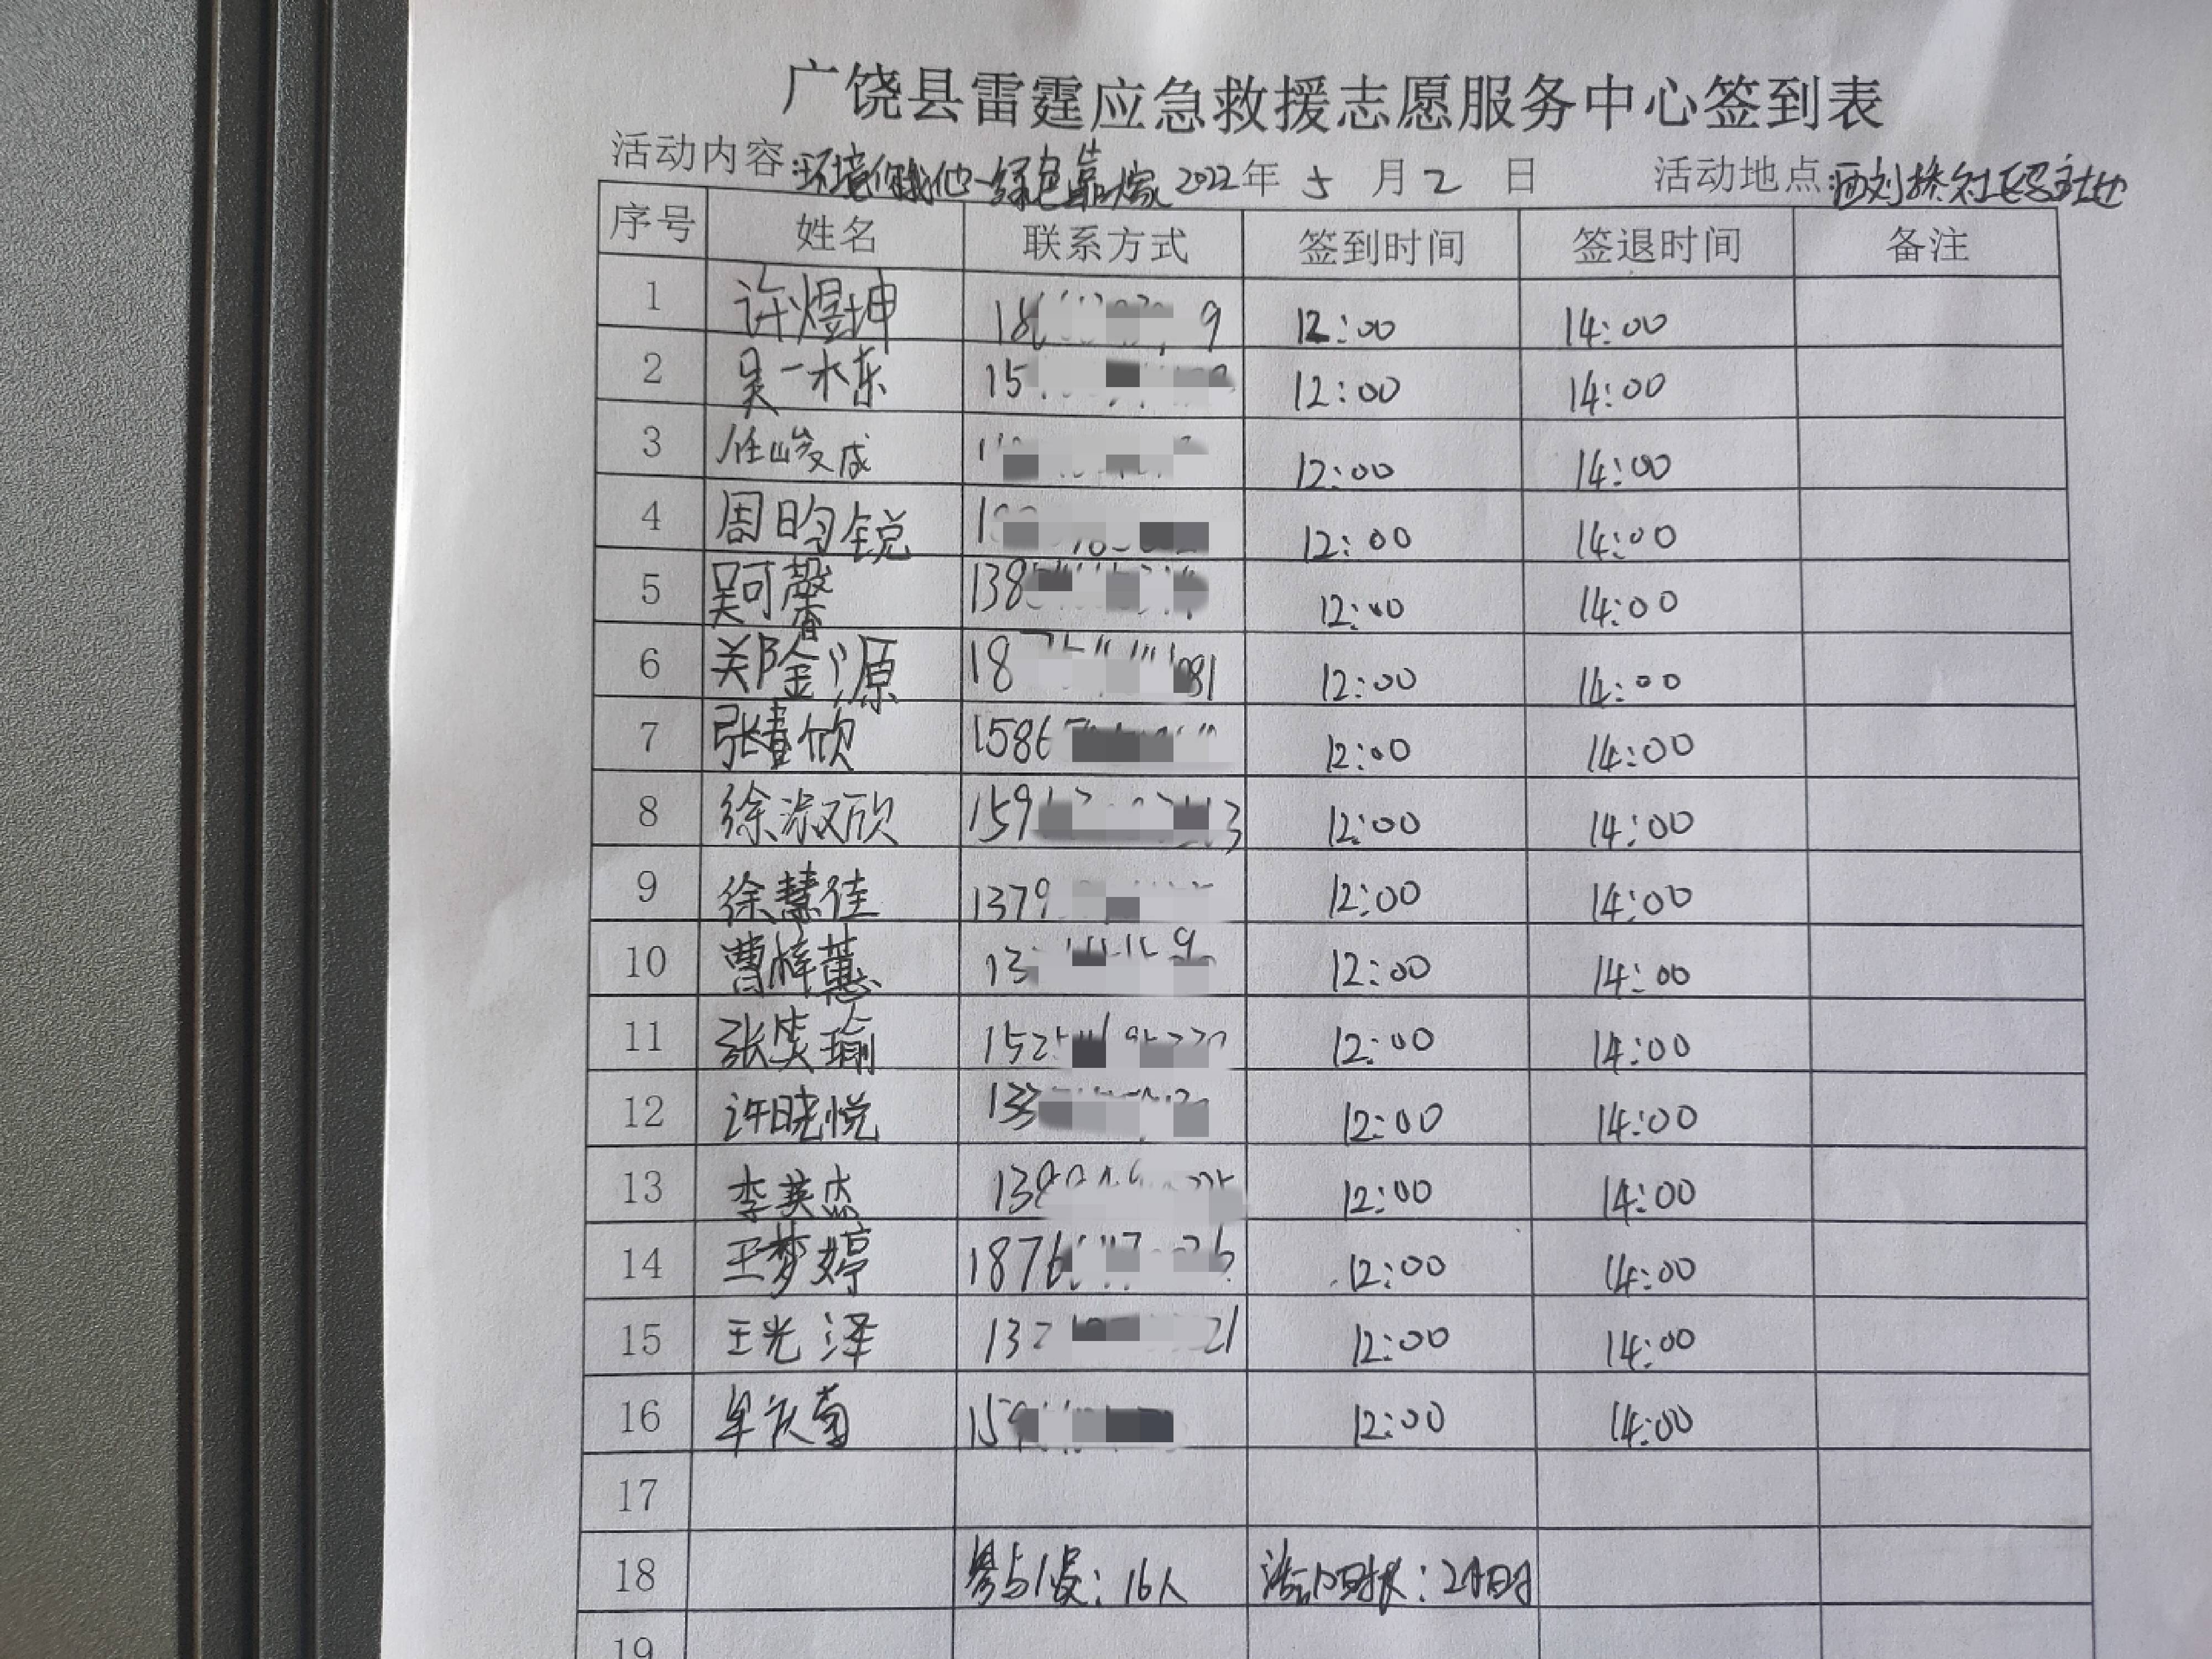 广饶县雷霆应急救援志愿服务中心签到表
活动内容:环境你我他-绿色靠大家 2022年 5 月 2 日 活动地点:西刘桥社区
序号 姓名 联系方式 签到时间 签退时间 备注
1 许煜坤 18 9 12:00 14:00
2 吴一木东 15 12:00 14:00
3 任峻成 12:00 14:00
4 周昀锐 12:00 14:00
5 吴可馨 138 12:00 14:00
6 关隆源 18 81 12:00 14:00
7 张 欣 1586 12:00 14:00
8 徐淑欣 159 3 12:00 14:00
9 徐慧佳 1379 12:00 14:00
10 曹梓蕙 13 12:00 14:00
11 张笑瑜 152 12:00 14:00
12 许晓悦 133 12:00 14:00
13 李英杰 138 12:00 14:00
14 王梦婷 1876 12:00 14:00
15 王光泽 132 21 12:00 14:00
16 牟庆菊 159 12:00 14:00
17
18 参与人员:16人 活动时长:2小时
19